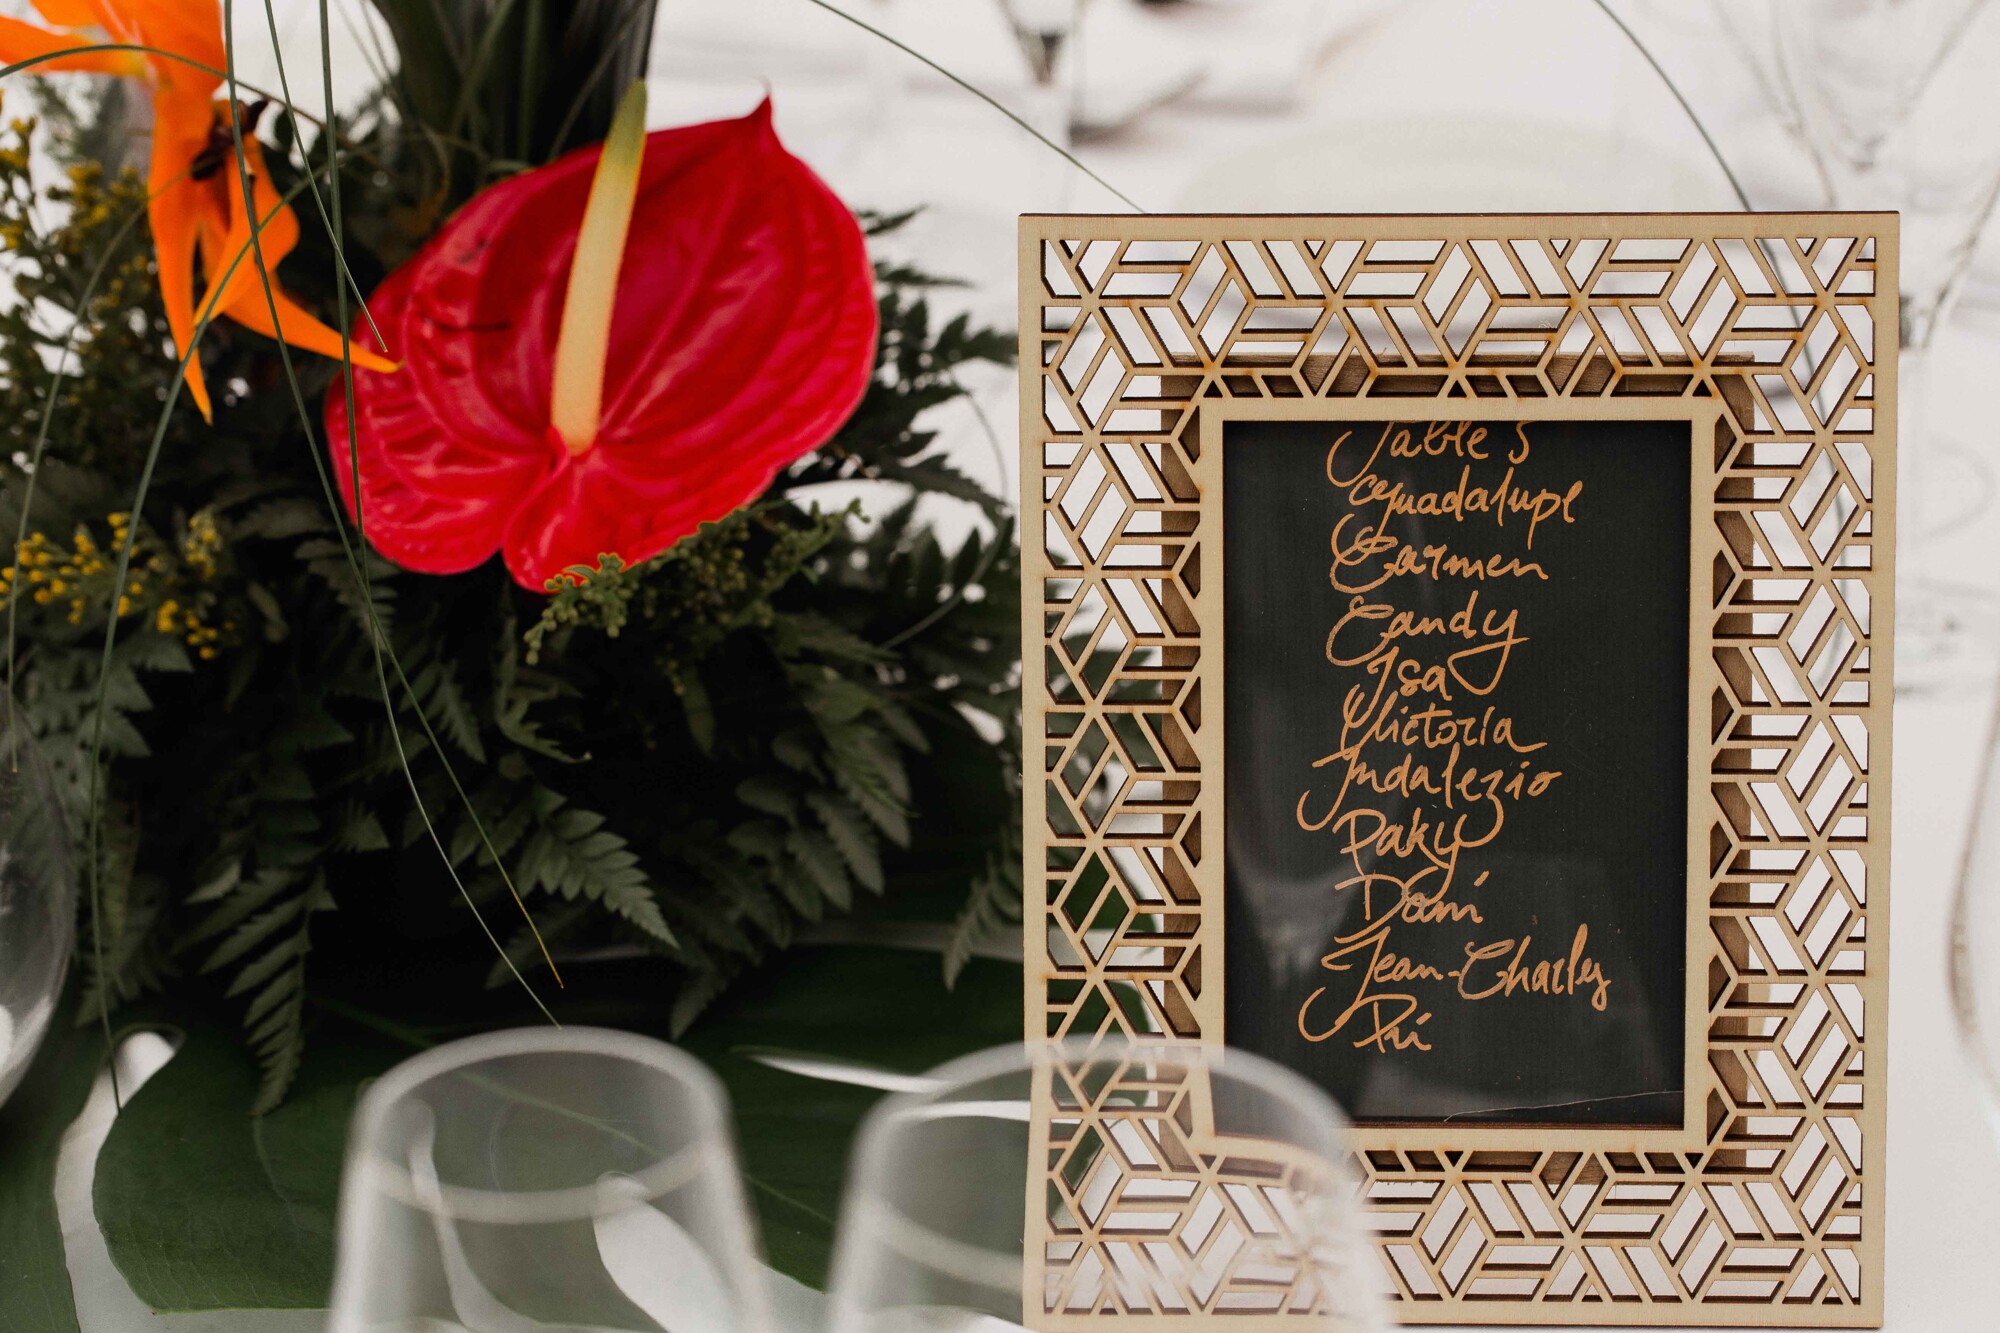 Table 5
Guadalupe
Carmen
Candy
Isa
Victoria
Indalezio
Paky
Dani
Jean-Charles
Pri